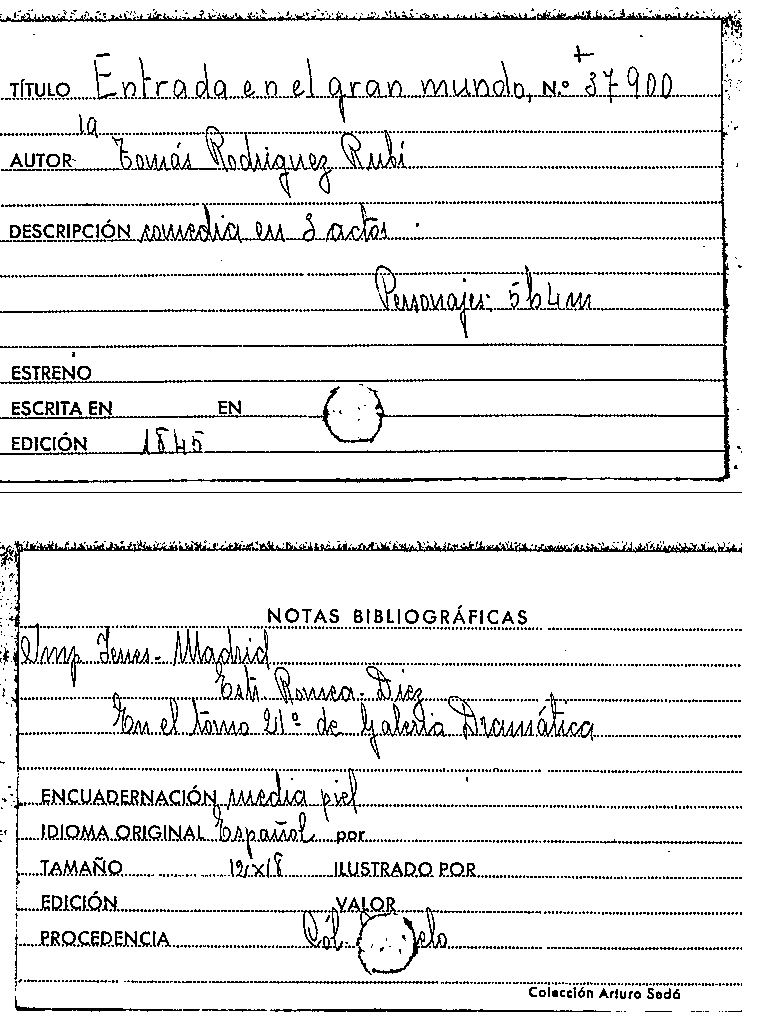 TÍTULO Entrada en el gran mundo, N.º 37900
la
AUTOR Tomás Rodriguez Rubí
DESCRIPCIÓN comedia en 3 actos.
Personajes: 5h4m
ESTRENO
ESCRITA EN EN
EDICIÓN 1845
NOTAS BIBLIOGRÁFICAS
Imp Madrid
Estr. Romea - Diez
En el tomo 21º de Galeria Dramática
ENCUADERNACIÓN media piel
IDIOMA ORIGINAL Español por
TAMAÑO 12x18 ILUSTRADO POR
EDICIÓN VALOR
PROCEDENCIA Cól.
Colección Arturo Sedó